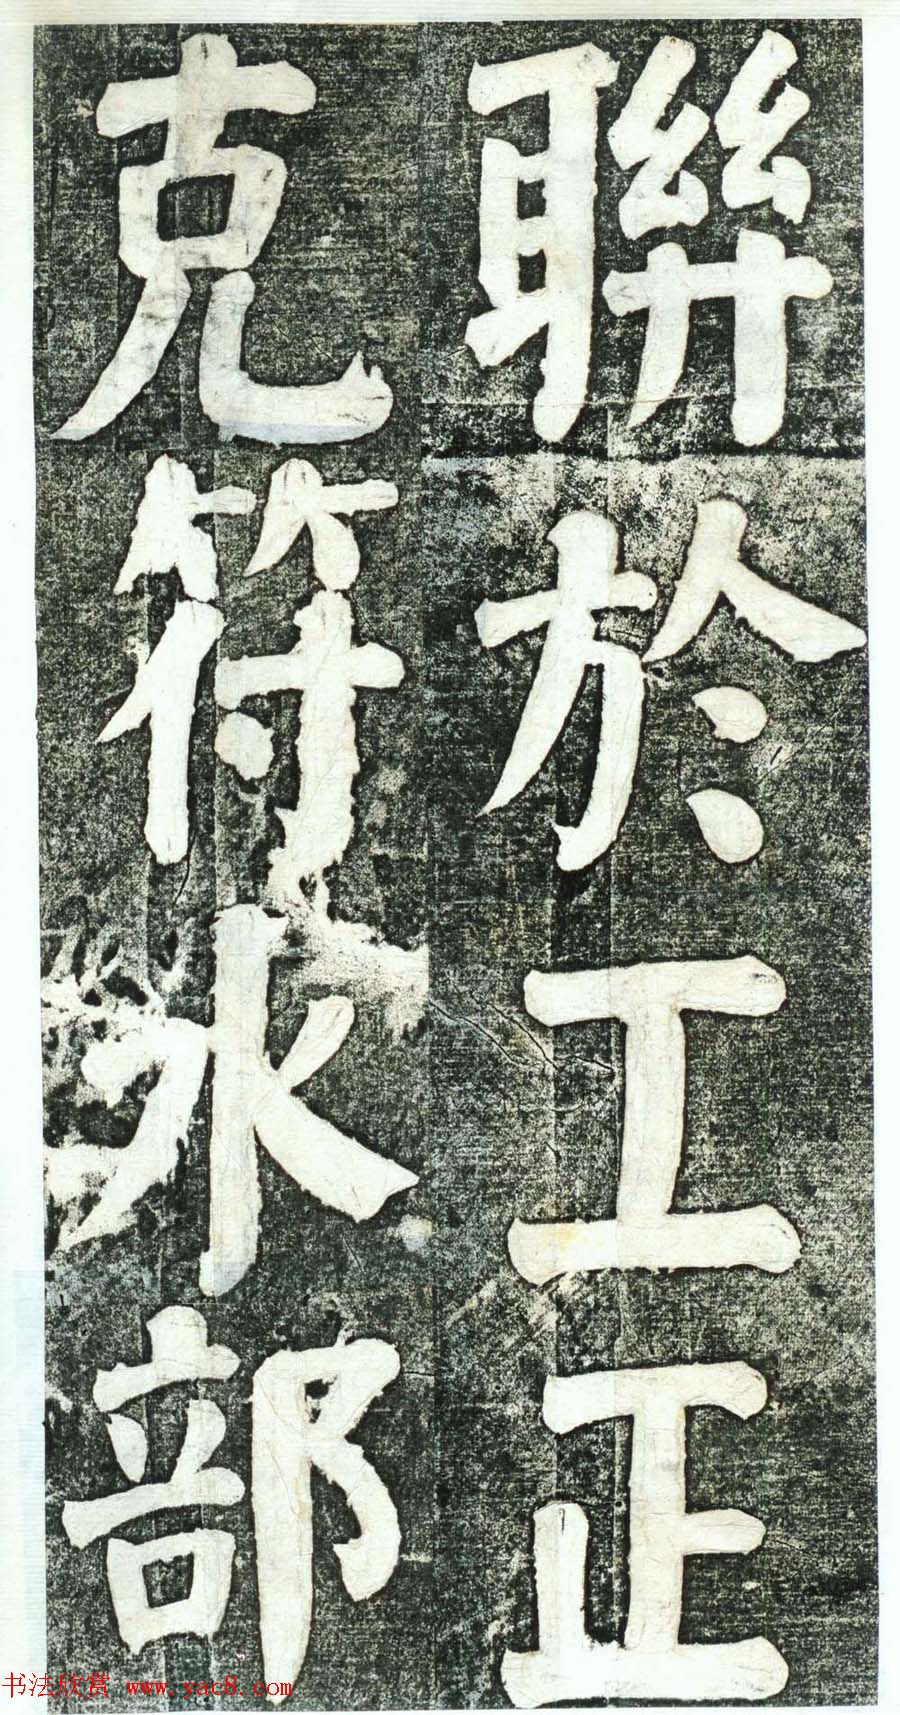 聯於工正
克符水部
书法欣赏 www.yac8.com